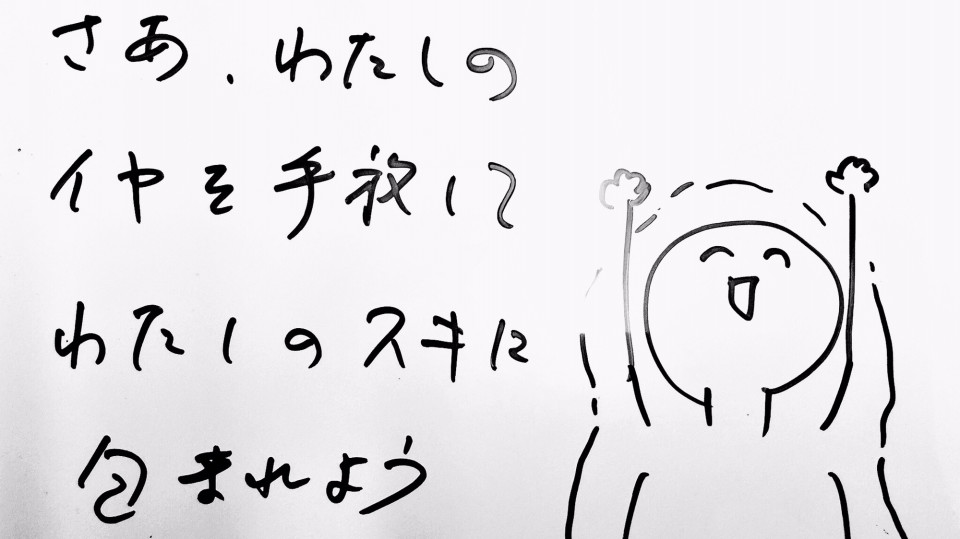 さあ、わたしの
イヤを手放して
わたしのスキに
包まれよう